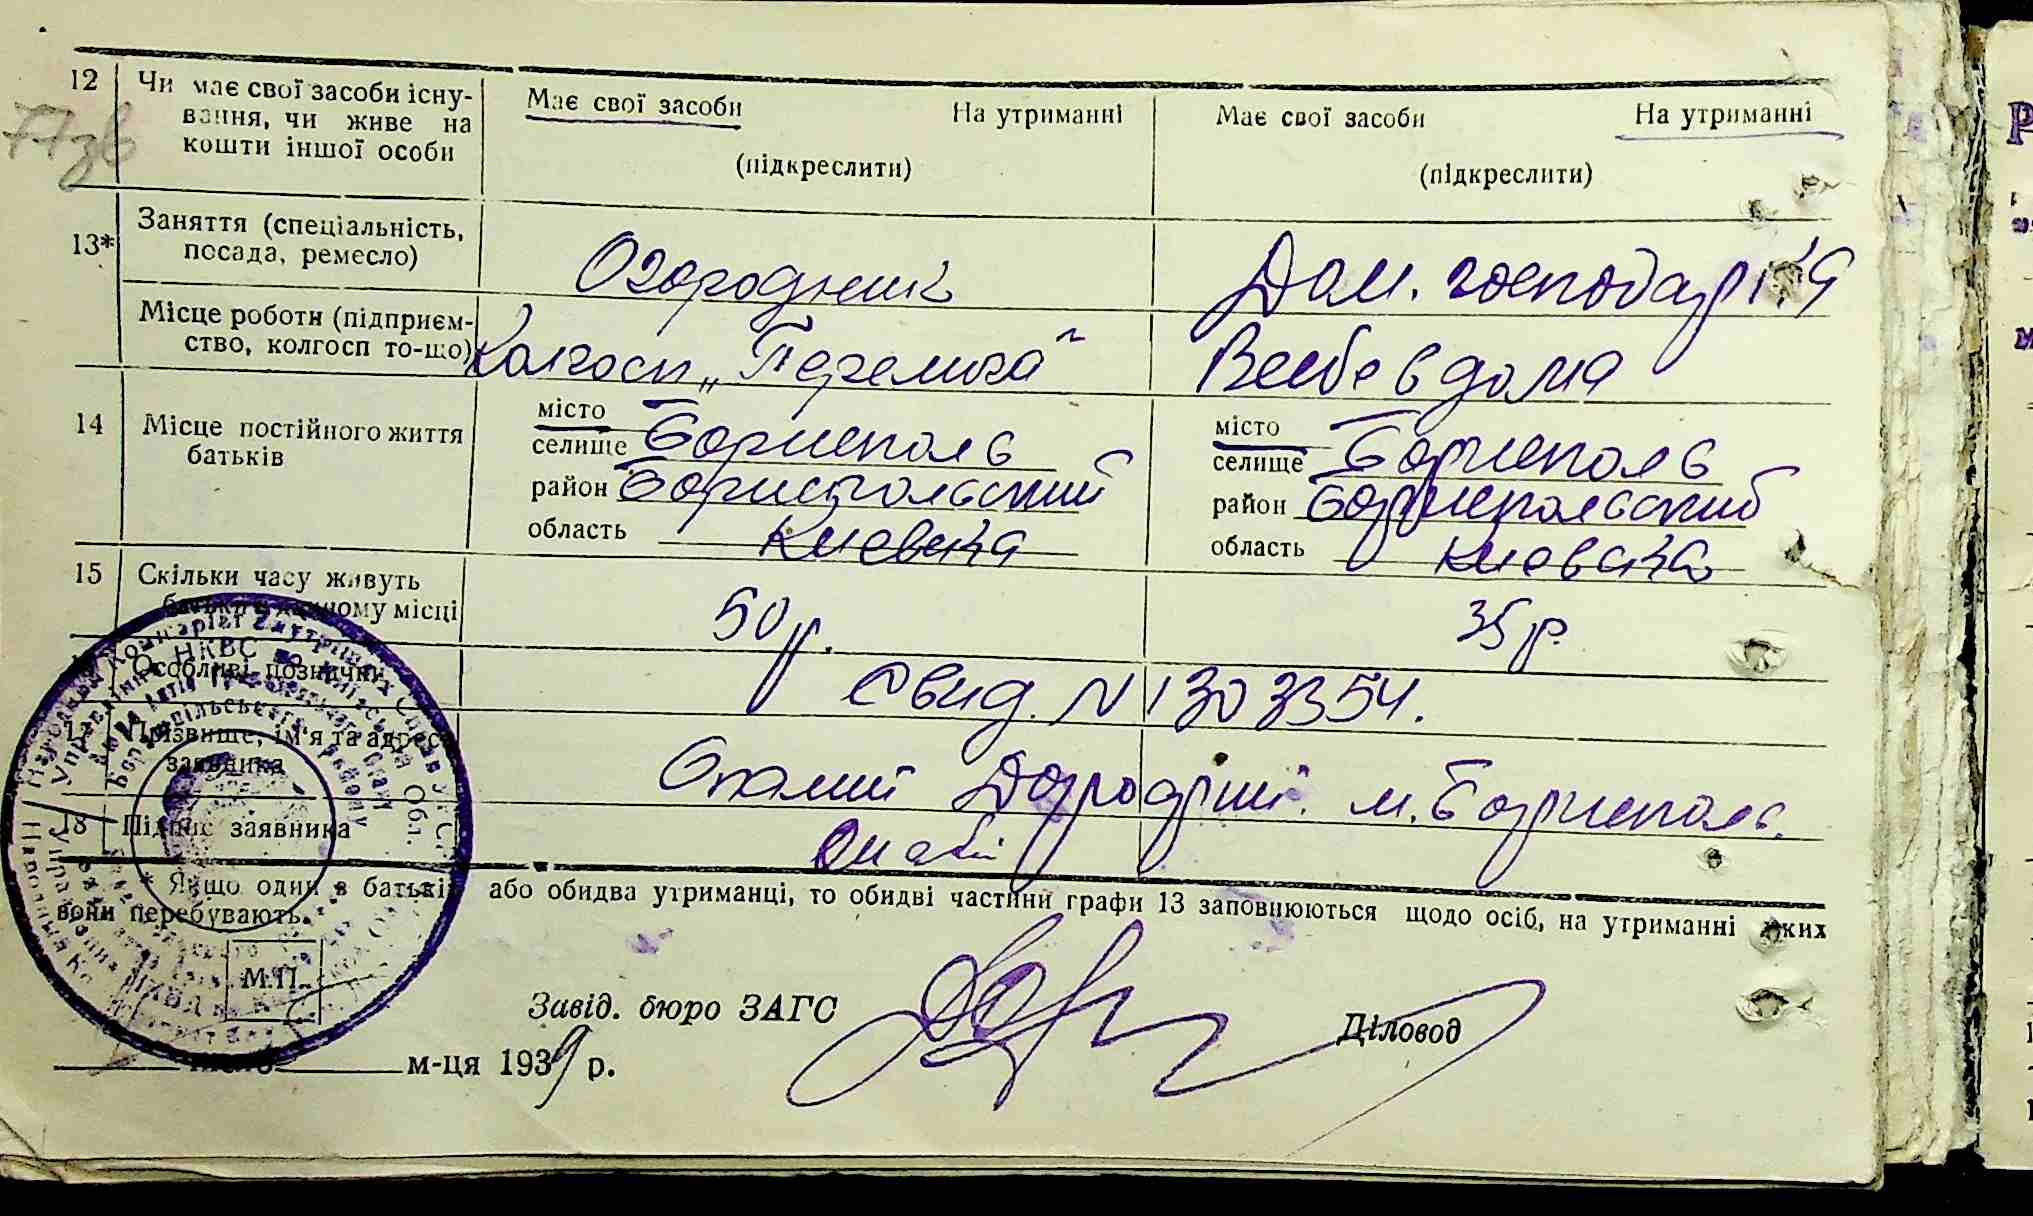 12 Чи має свої засоби існу-
вання, чи живе на
кошти іншої особи
Має свої засоби На утриманні
(підкреслити)
Має свої засоби На утриманні
(підкреслити)
77зв
13* Заняття (спеціальність,
посада, ремесло)
Огородник
Дом. господарка
Місце роботи (підприєм-
ство, колгосп то-що)
Колгосп „Перемога"
в дома
14 Місце постійного життя
батьків
місто
селище Борисполь
район Бориспольский
область Киевска
місто
селище Борисполь
район Бориспольский
область Киевска
15 Скільки часу живуть
батьки в даному місці
50 р.
35 р.
Особливі позначки
Свид. N 1303354.
Прізвище, ім'я та адреса
заявника
м. Борисполь.
18 Підпис заявника
* Якщо один з батьків або обидва утриманці, то обидві частини графи 13 заповнюються щодо осіб, на утриманні яких
вони перебувають.
М.П.
Завід. бюро ЗАГС
Діловод
число м-ця 1939 р.